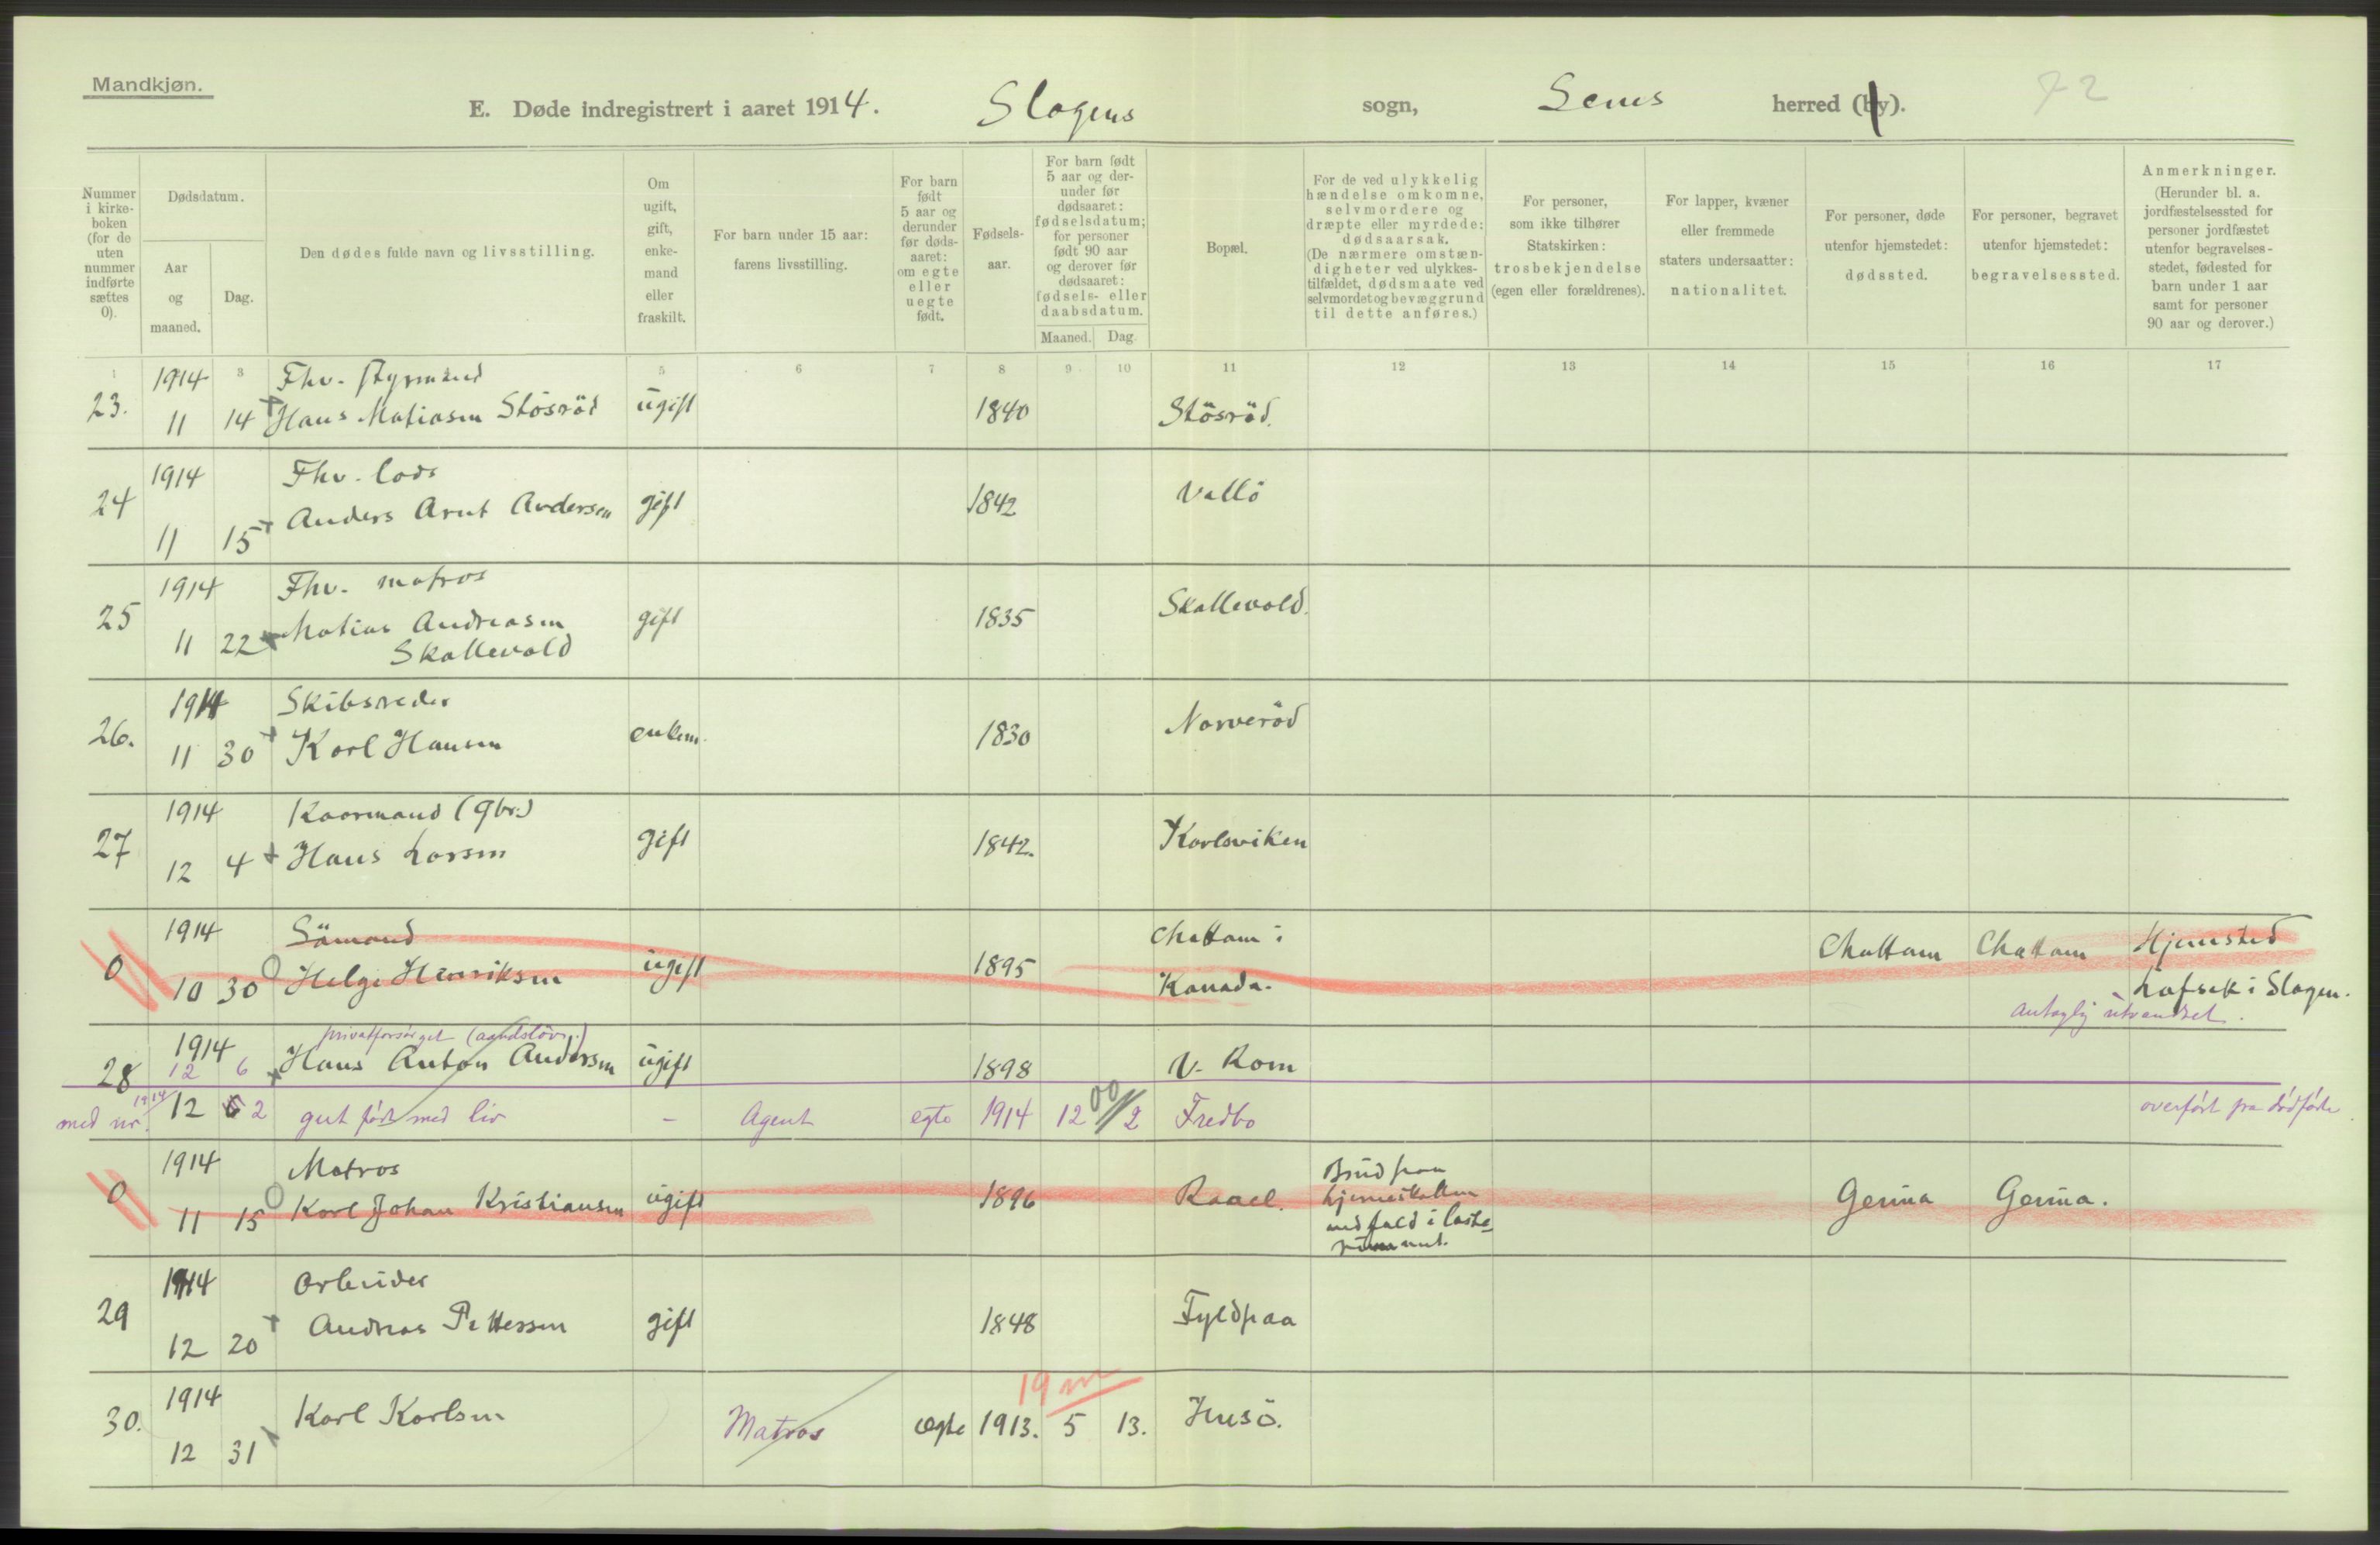 Mandkjøn.
E. Døde indregistrert i aaret 1914. Slagens sogn, Sems herred (by). 72
Nummer i kirkeboken (for de uten nummer indførte sættes 0).
Dødsdatum.
Aar og maaned.
Dag.
Den dødes fulde navn og livsstilling.
Om ugift, gift, enkemand eller fraskilt.
For barn under 15 aar: farens livsstilling.
For barn født 5 aar og derunder før dødsaaret: om egte eller uegte født.
Fødselsaar.
For barn født 5 aar og derunder før dødsaaret: fødselsdatum; for personer født 90 aar og derover før dødsaaret: fødsels- eller daabsdatum.
Maaned. Dag.
Bopæl.
For de ved ulykkelig hændelse omkomne, selvmordere og dræpte eller myrdede: dødsaarsak. (De nærmere omstændigheter ved ulykkestilfældet, dødsmaate ved selvmordet og bevæggrund til dette anføres.)
For personer, som ikke tilhører Statskirken: trosbekjendelse (egen eller forældrenes).
For lapper, kvæner eller fremmede staters undersaatter: nationalitet.
For personer, døde utenfor hjemstedet: dødssted.
For personer, begravet utenfor hjemstedet: begravelsessted.
Anmerkninger. (Herunder bl. a. jordfæstelsessted for personer jordfæstet utenfor begravelsesstedet, fødested for barn under 1 aar samt for personer 90 aar og derover.)
1 3 5 6 7 8 9 10 11 12 13 14 15 16 17
1914 Fhv. styrmand
23. 11 14 Hans Matiasen Stösröd ugift 1840 Stösröd.
1914 Fhv. lods
24 11 15 Anders Arnt Andersen gift 1842 Vallö
1914 Fhv. matros
25 11 22 Matias Andreasen gift 1835 Skallevold.
Skallevold
1914 Skibsreder
26. 11 30 Karl Hansen enkem. 1830 Norveröd
1914 Kaarmand (gbr.)
27 12 4 Hans Larsen gift 1842. Karlsviken
1914 Sömand Chattam i
0 10 30 Helge Henriksen ugift 1895 Kanada. Chattam Chattam Hjemsted
Lofsek i Slagen.
antaglig utvandret.
1914 privatforsörget (aandslöv)
28 12 6 Hans Anton Andersen ugift 1898 V. Rom
med nr. 1914 12 2 gut født med liv - Agent egte 1914 12 2 Fredbo overført fra dödfödte
1914 Matros
0 11 15 Karl Johan Kristiansen ugift 1896 Raael. Genua Genua.
Brud paa
hjerneskallen
ved fald i laste-
rummet.
1914 Arbeider
29 12 20 Andreas Pettersen gift 1848 Fyldpaa
19 m
1914
30. 12 31 Karl Karlsen Matros egte 1913. 5 13. Husö.